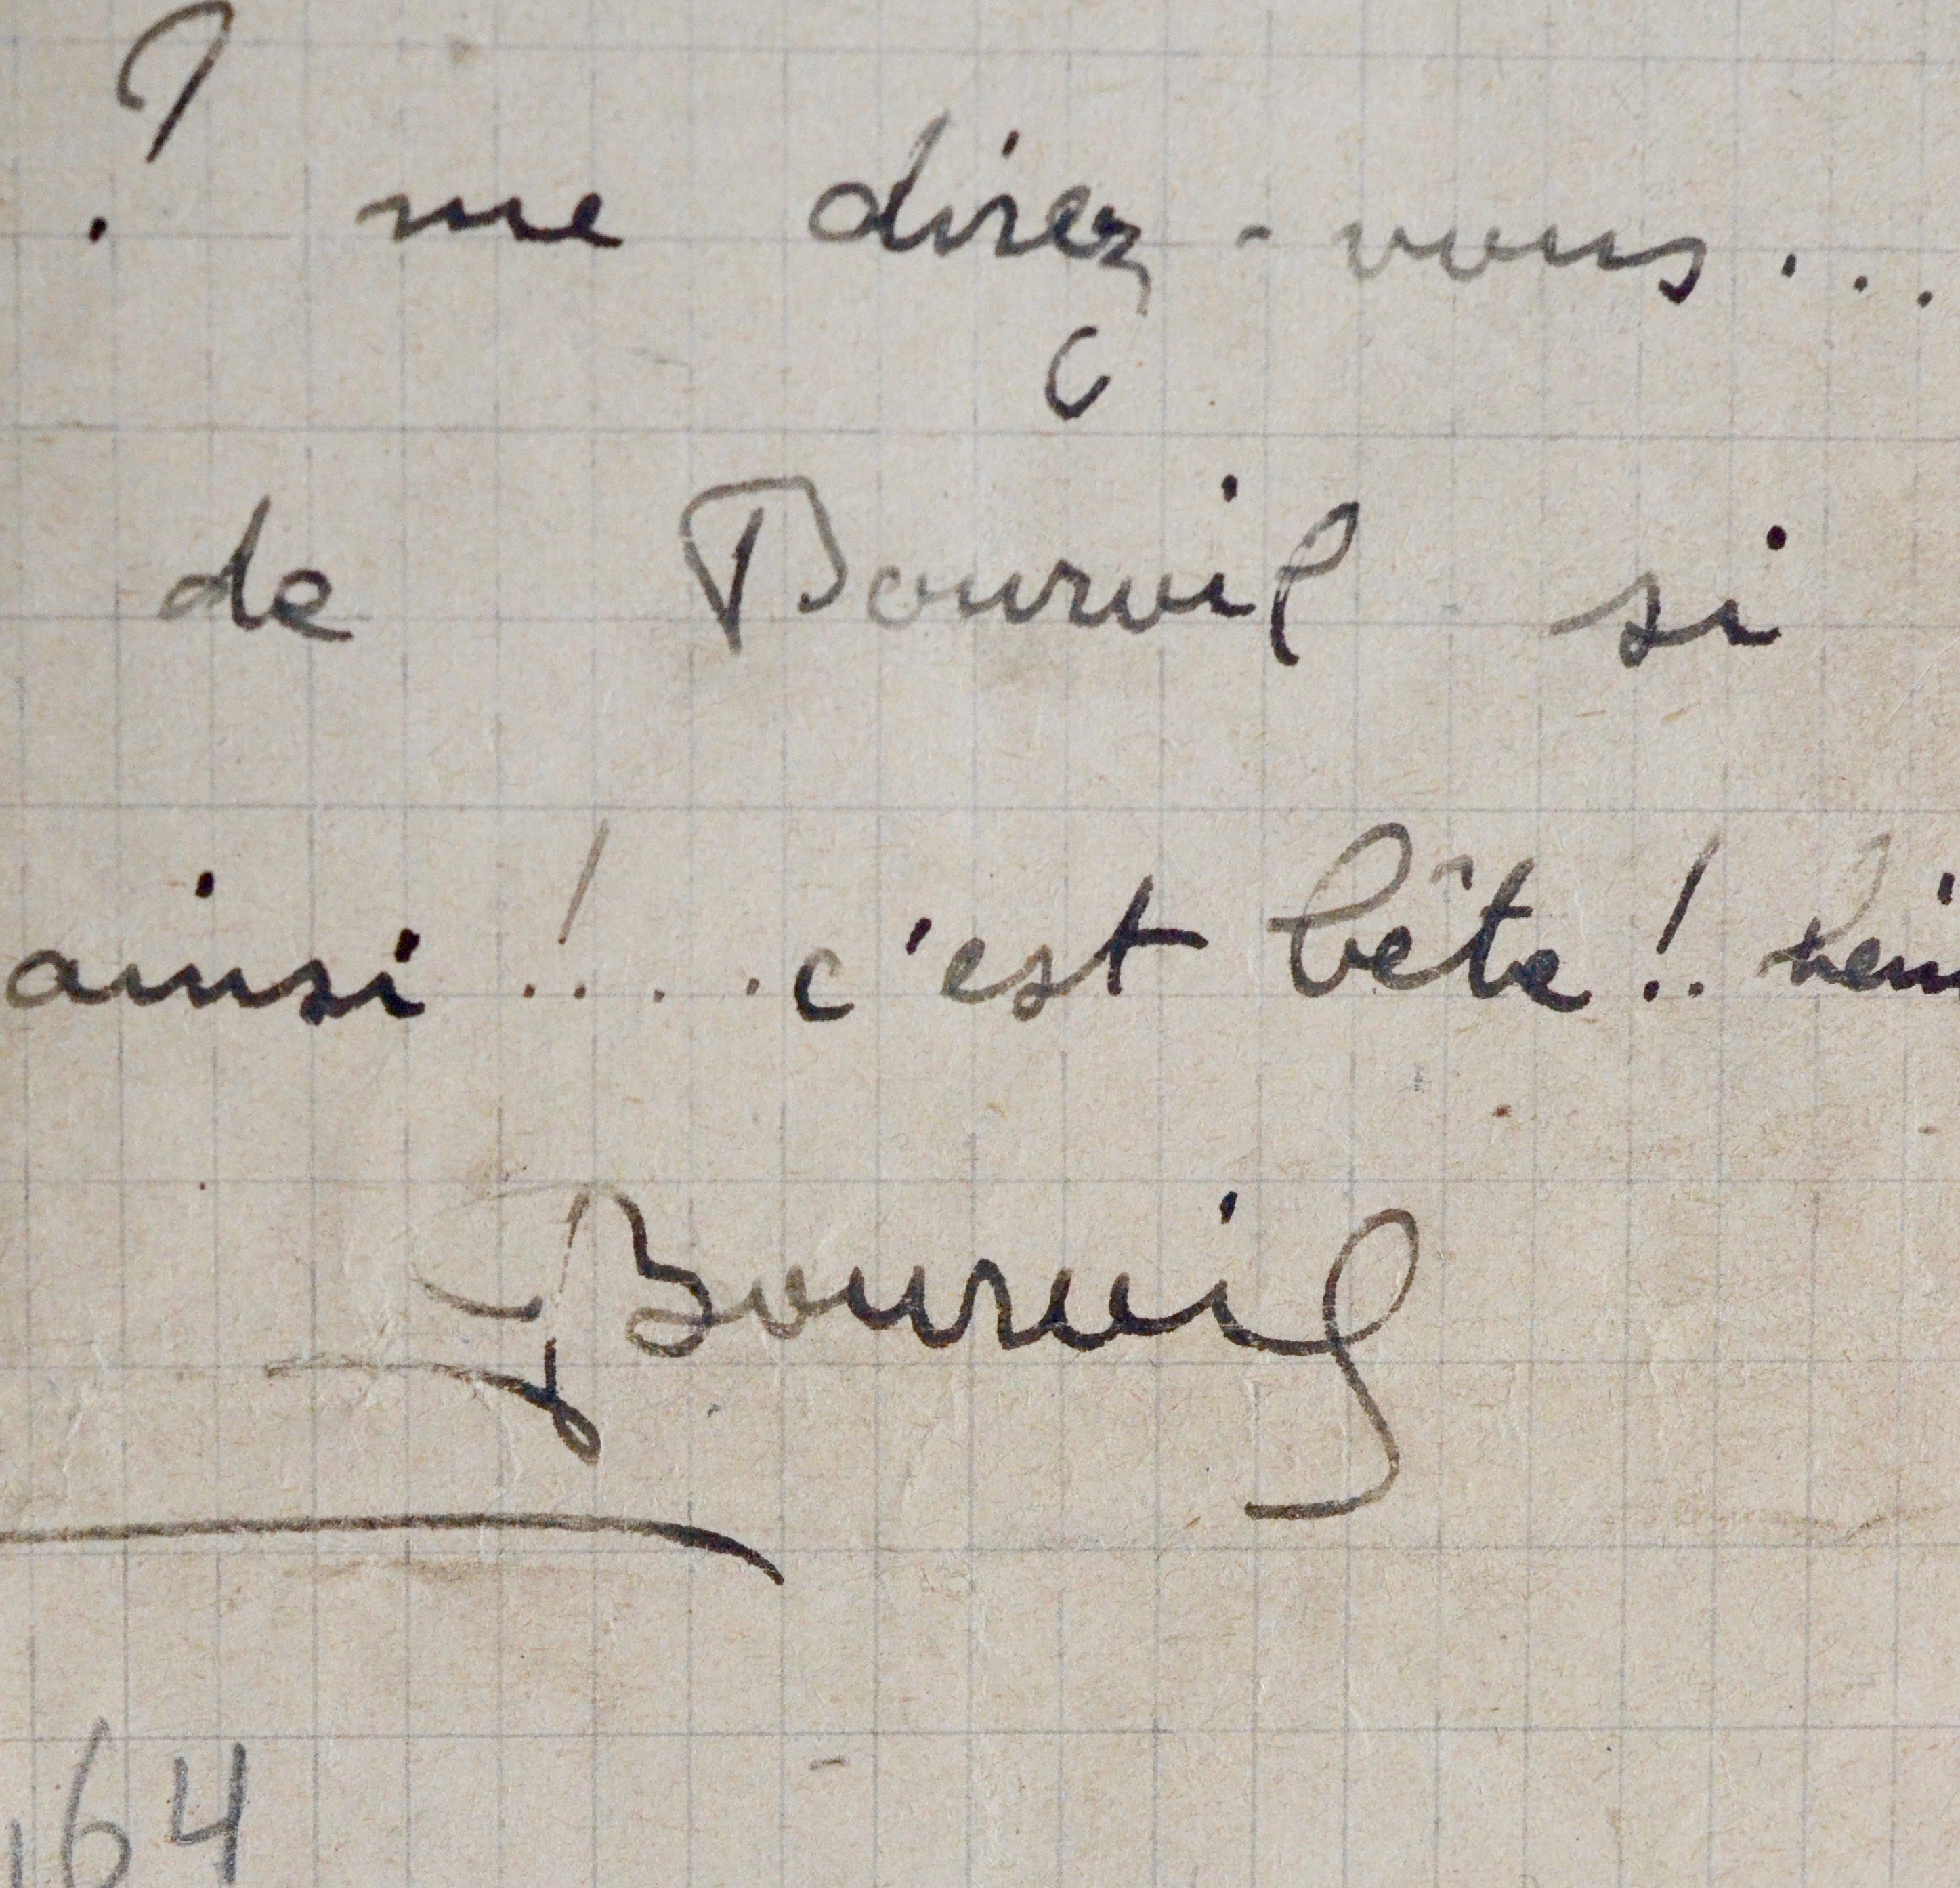 ? me direz-vous...
de Bourvil si
ainsi !.... c'est bête !. hein
Bourvil
164